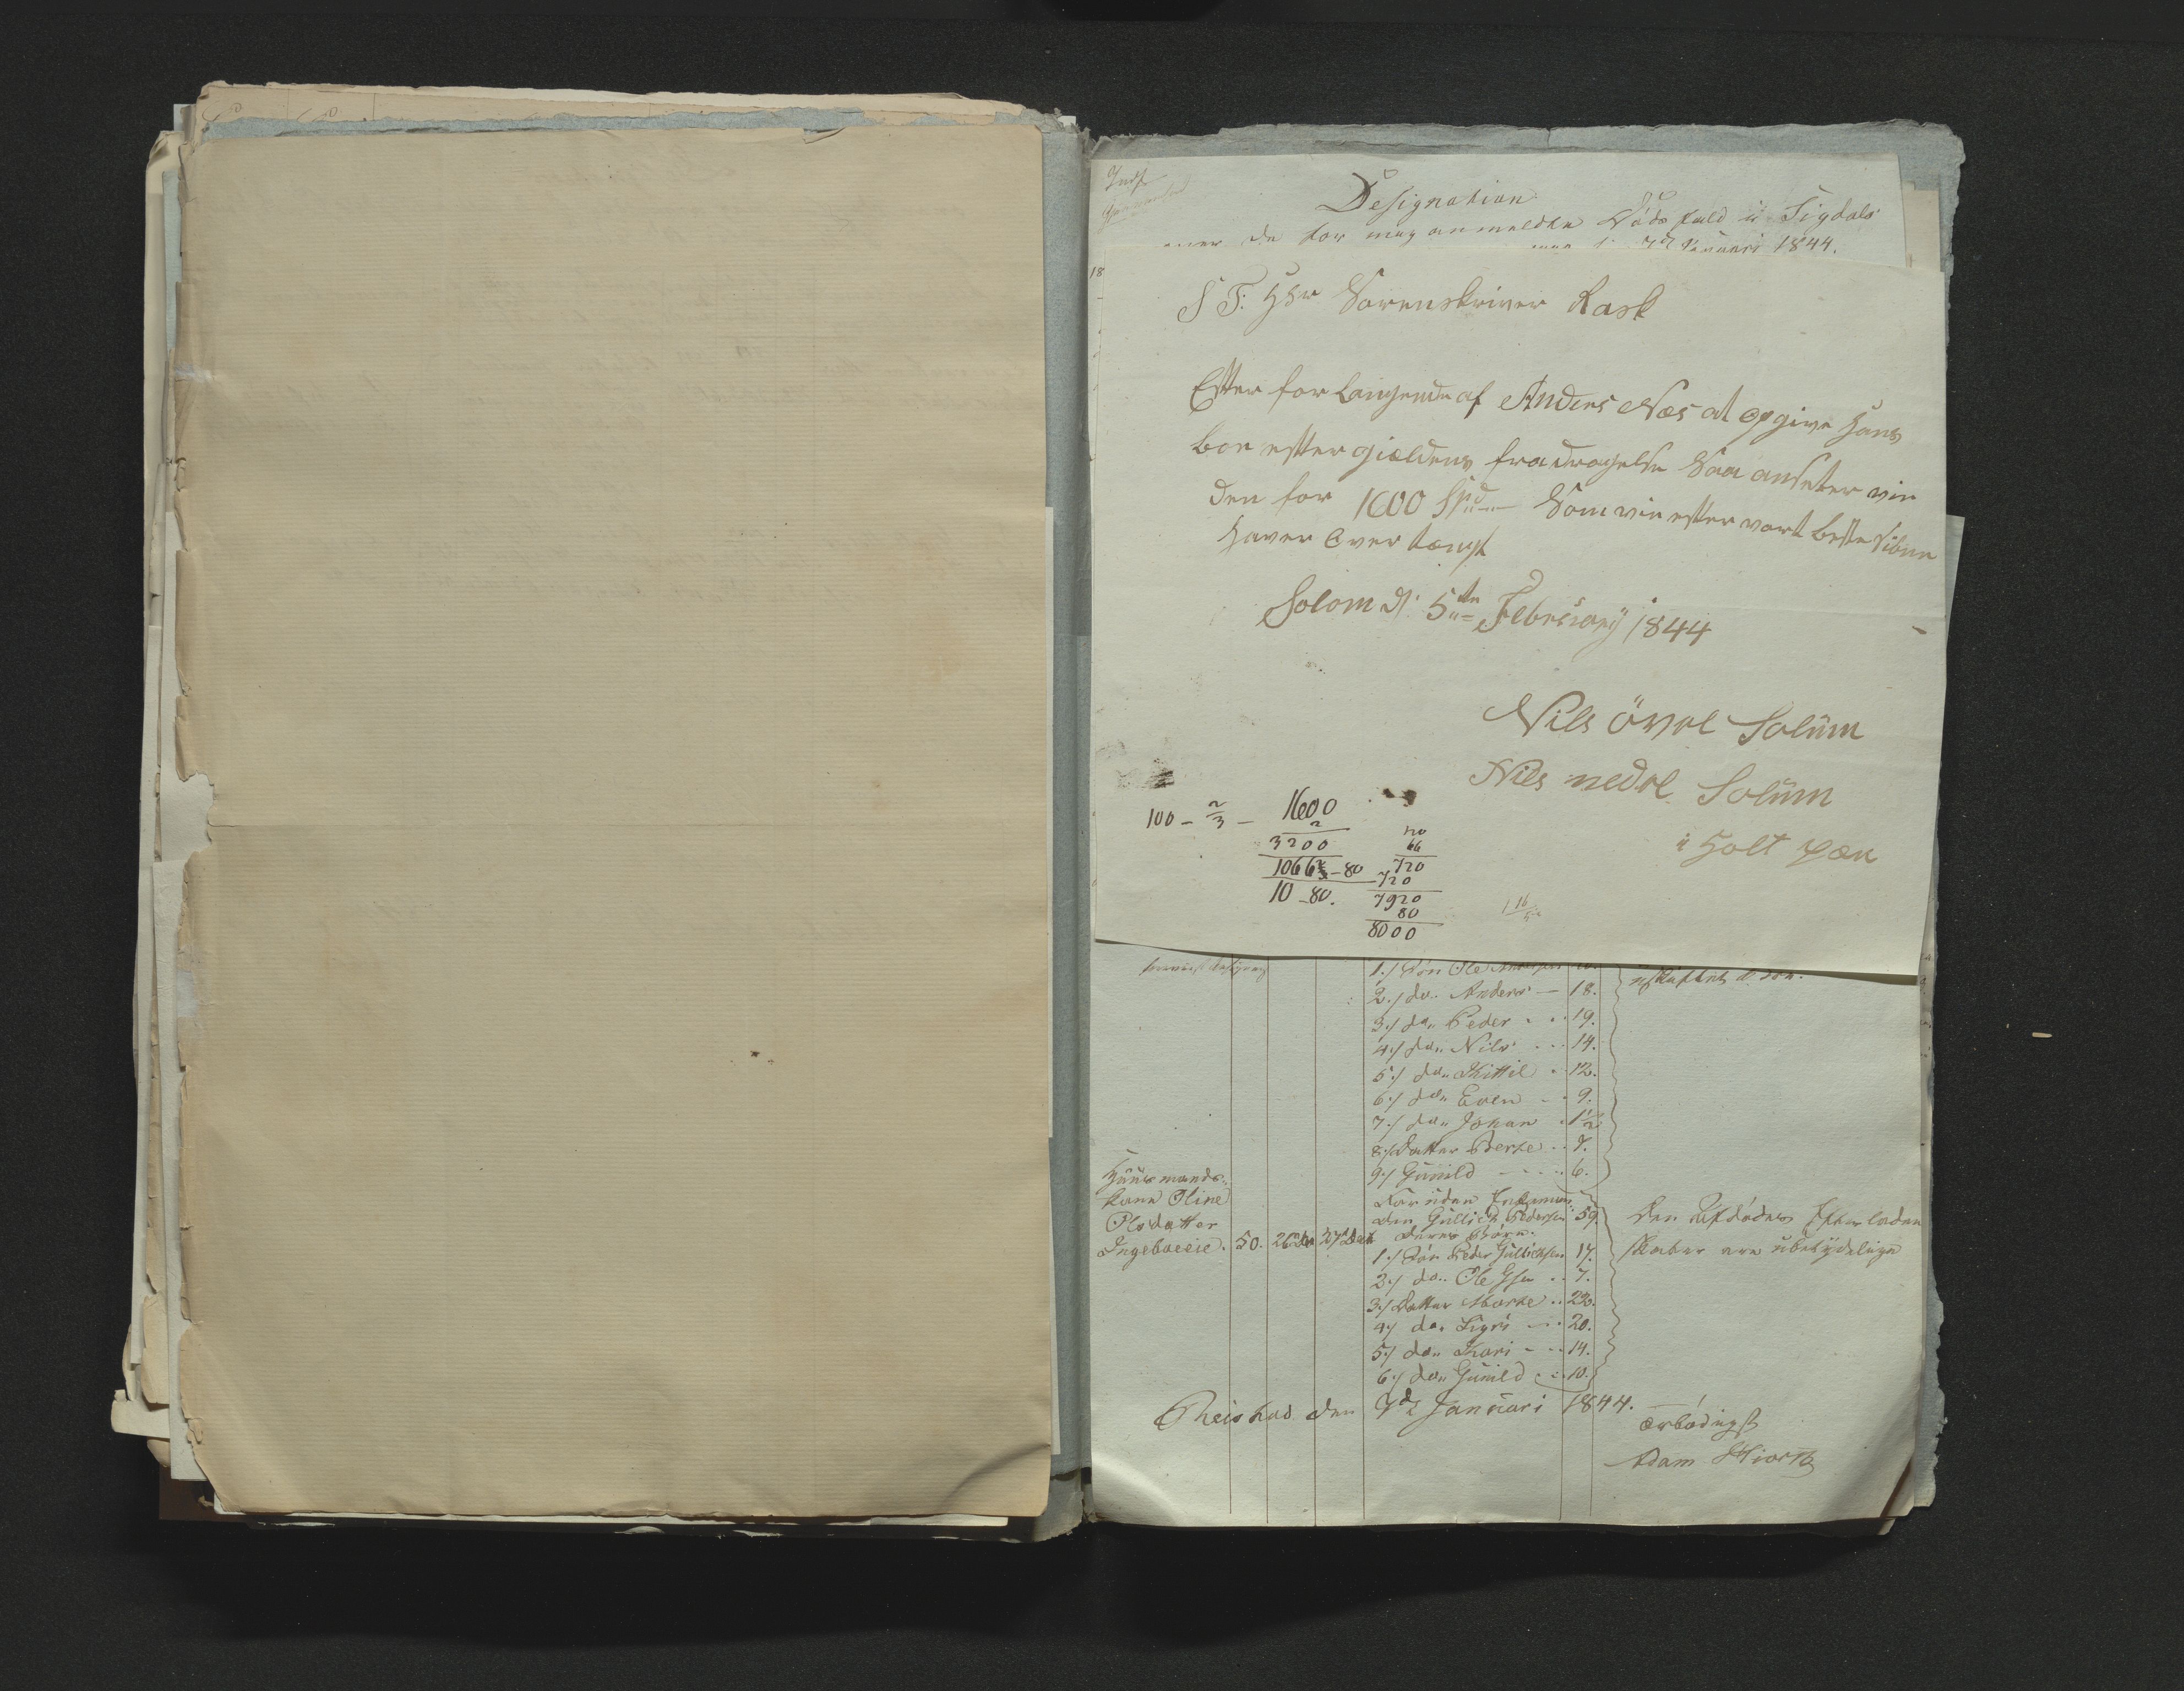 Designation
over de for mig anmeldte Dødsfald i Sigdals
7d Januari 1844.
18
S T: Hr Sorenskriver Rask
Efter forlangende af Anders Næs at opgive Hans
boe efter gieldens fradragelse Saa ansetter vie
den for 1600 Spd Som vie efter vort beste vidne
haver Over tængt
Solom d: 5te Februarÿ 1844
Nils övre Solüm
Niels nedre Solüm
i Holt pæn
100 - 2/3 - 1600
2
3200
1066 2/3 - 80
10 - 80.
120
66
720
720
7920
80
8000
1./ Søn Ole
2./ do. Anders — 18.
3./ do. Peder . . . 19.
4./ do. Nils . . . 14.
5./ do. Kittil . . 12.
6./ do. Even . . 9.
7./ do. Johan . 1½
8./ Datter Berthe . . 7.
9./ Gunild — . . . 6.
Huusmands-
kone Oline
Olsdatter
Ingeboeeie. 50. 26de 27de
Foruden Enkemanden
Gullich Pedersen 59
deres Børn:
1./ Søn Peder Gullichsen 17.
2./ do. Ole Gsen . . 7.
3./ Datter Marthe . . 23.
4./ do. Sigri — . . 20.
5./ do. Kari . . . 14.
6./ do. Gunild . . . 10.
Den Afdødes Efterladen
skaber ere ubetydelige
Preistud den 7de Januari 1844.
ærbødigst
Adam Hiorth